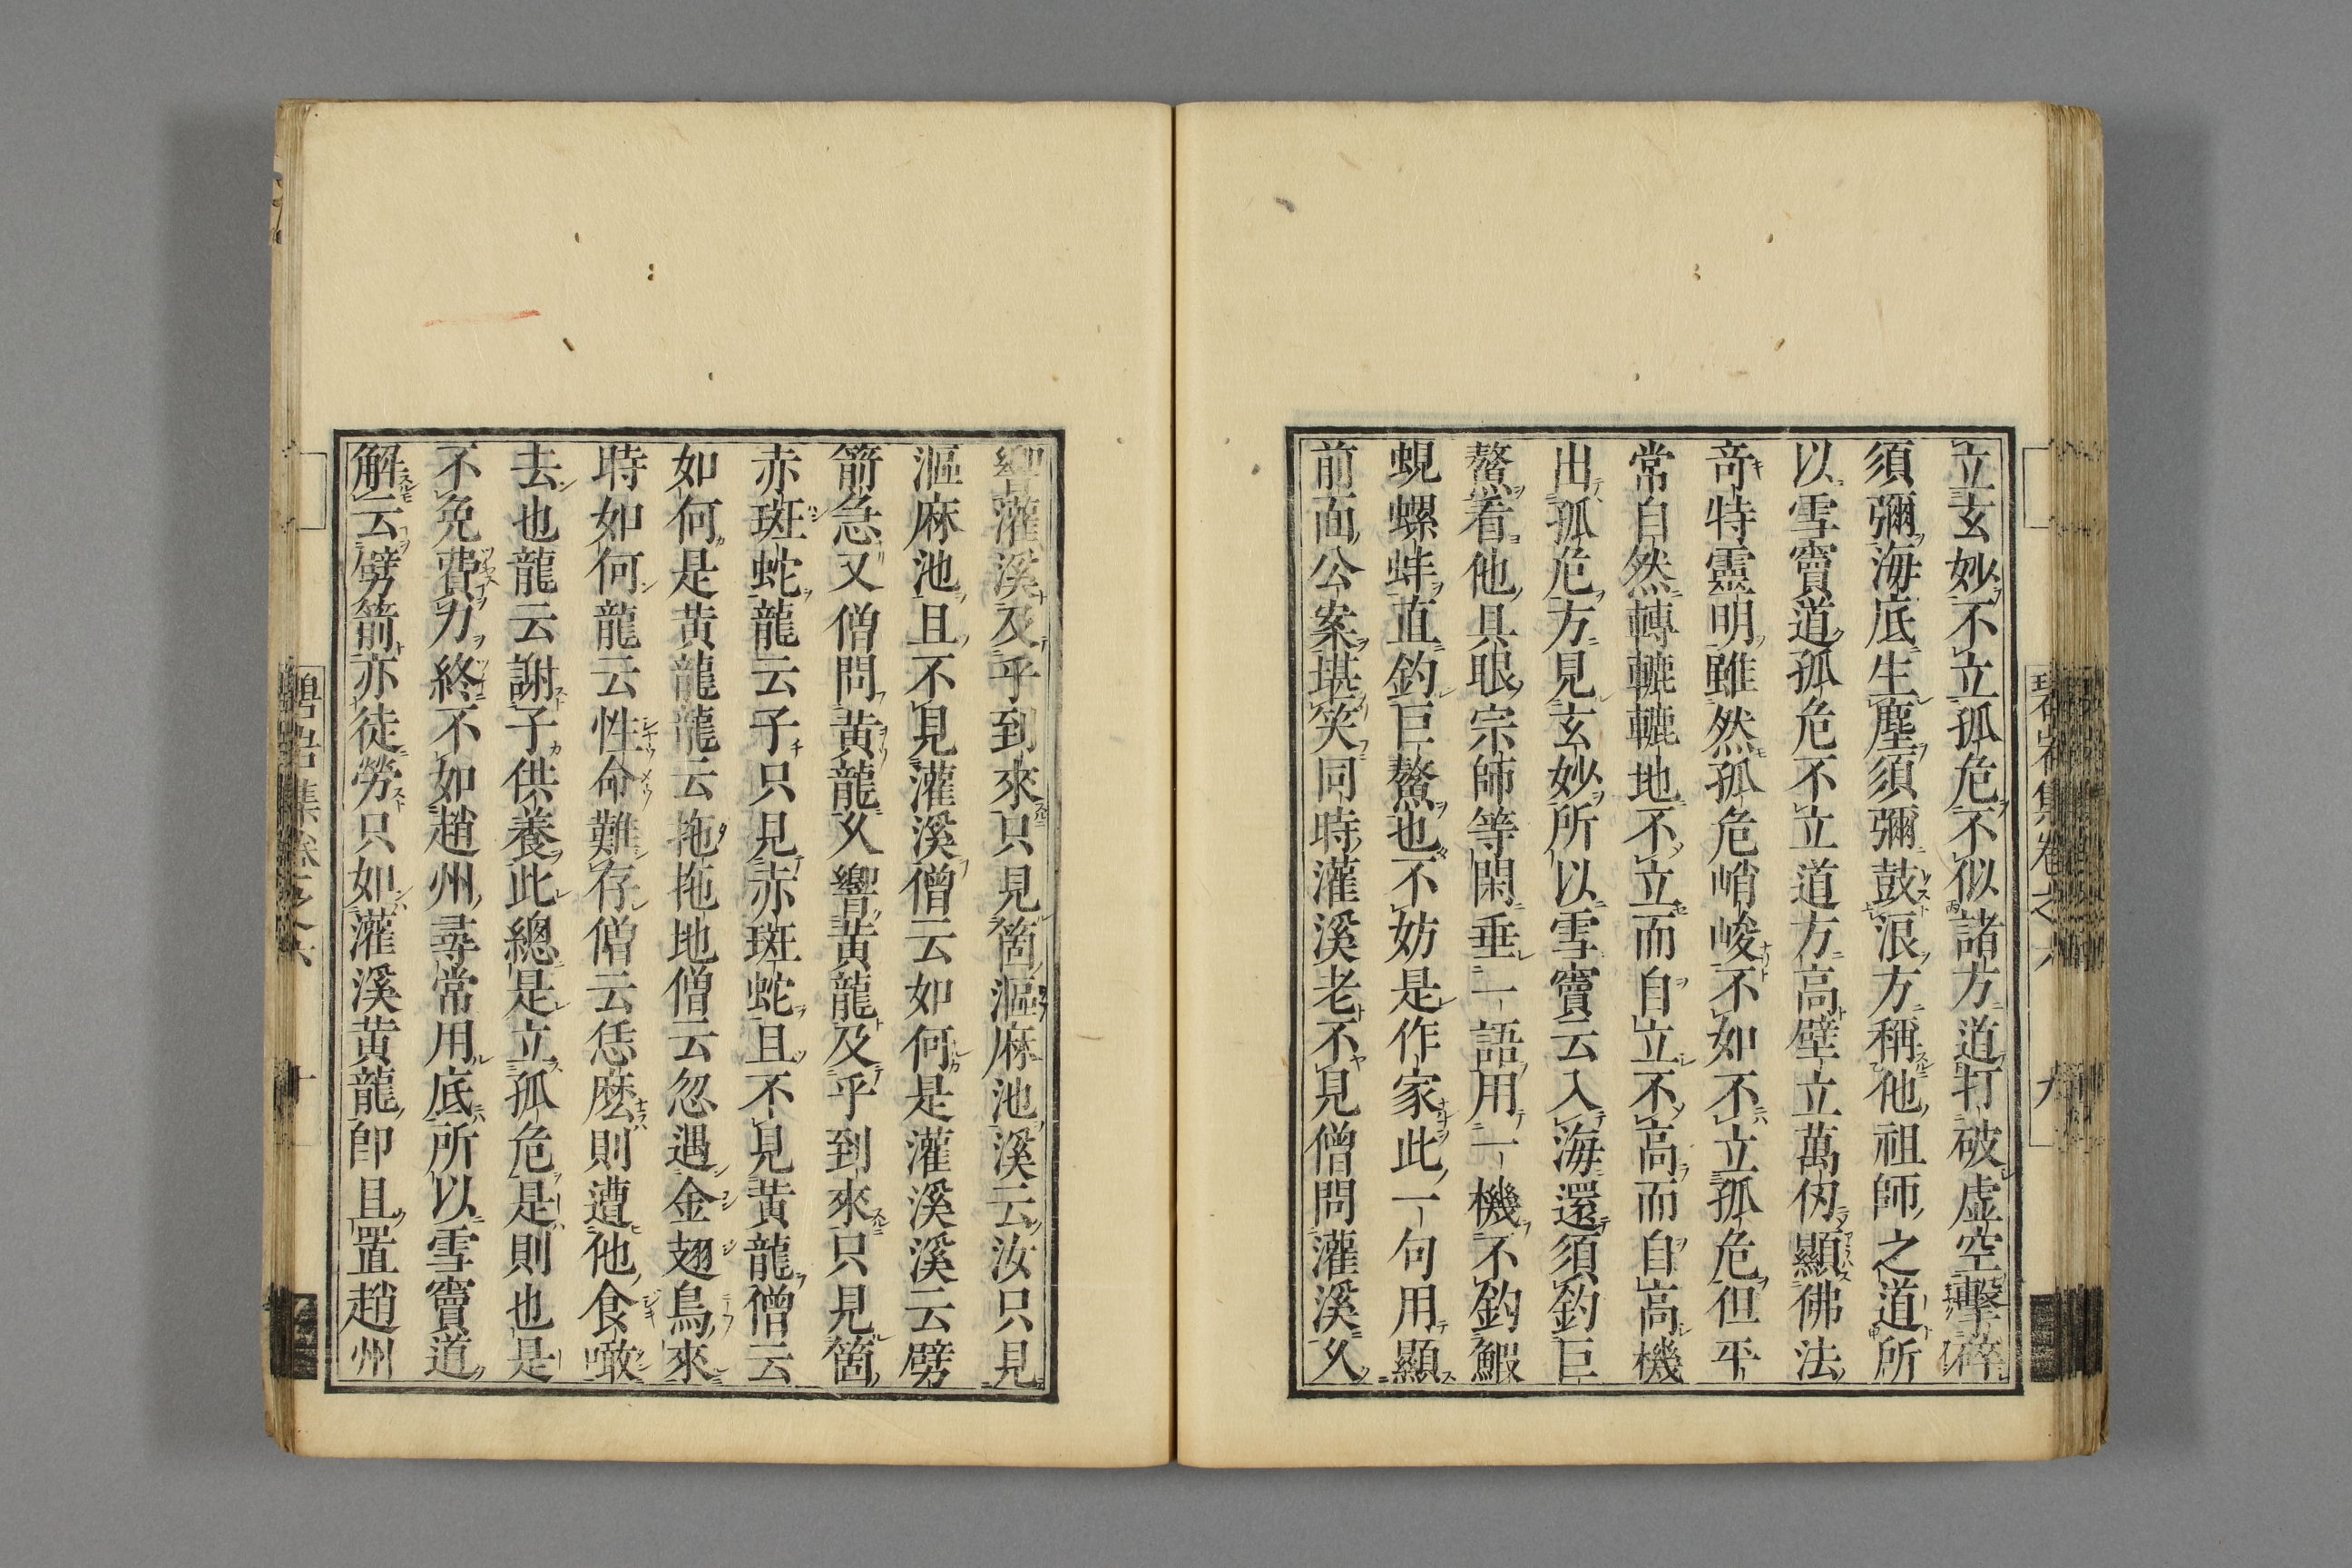 立玄妙不立孤危不似諸方道打破虚空擊碎
須彌海底生塵須彌鼓浪方稱他祖師之道所
以雪竇道孤危不立道方高壁立萬仭顯佛法
竒特靈明雖然孤危峭峻不如不立孤危但平
常自然轉轆轆地不立而自立不高而自高機
出孤危方見玄妙所以雪竇云入海還須釣巨
鰲看他具眼宗師等閑垂一語用一機不釣鰕
蜆螺蚌直釣巨鰲也不妨是作家此一句用顯
前面公案堪笑同時灌溪老不見僧問灌溪久
響灌溪及乎到來只見箇漚麻池溪云汝只見
漚麻池且不見灌溪僧云如何是灌溪溪云劈
箭急又僧問黄龍久響黄龍及乎到來只見箇
赤斑蛇龍云子只見赤斑蛇且不見黄龍僧云
如何是黄龍龍云拖拖地僧云忽遇金翅鳥來
時如何龍云性命難存僧云恁麽則遭他食噉
去也龍云謝子供養此總是立孤危是則也是
不免費力終不如趙州尋常用底所以雪竇道
解云劈箭亦徒勞只如灌溪黄龍即且置趙州